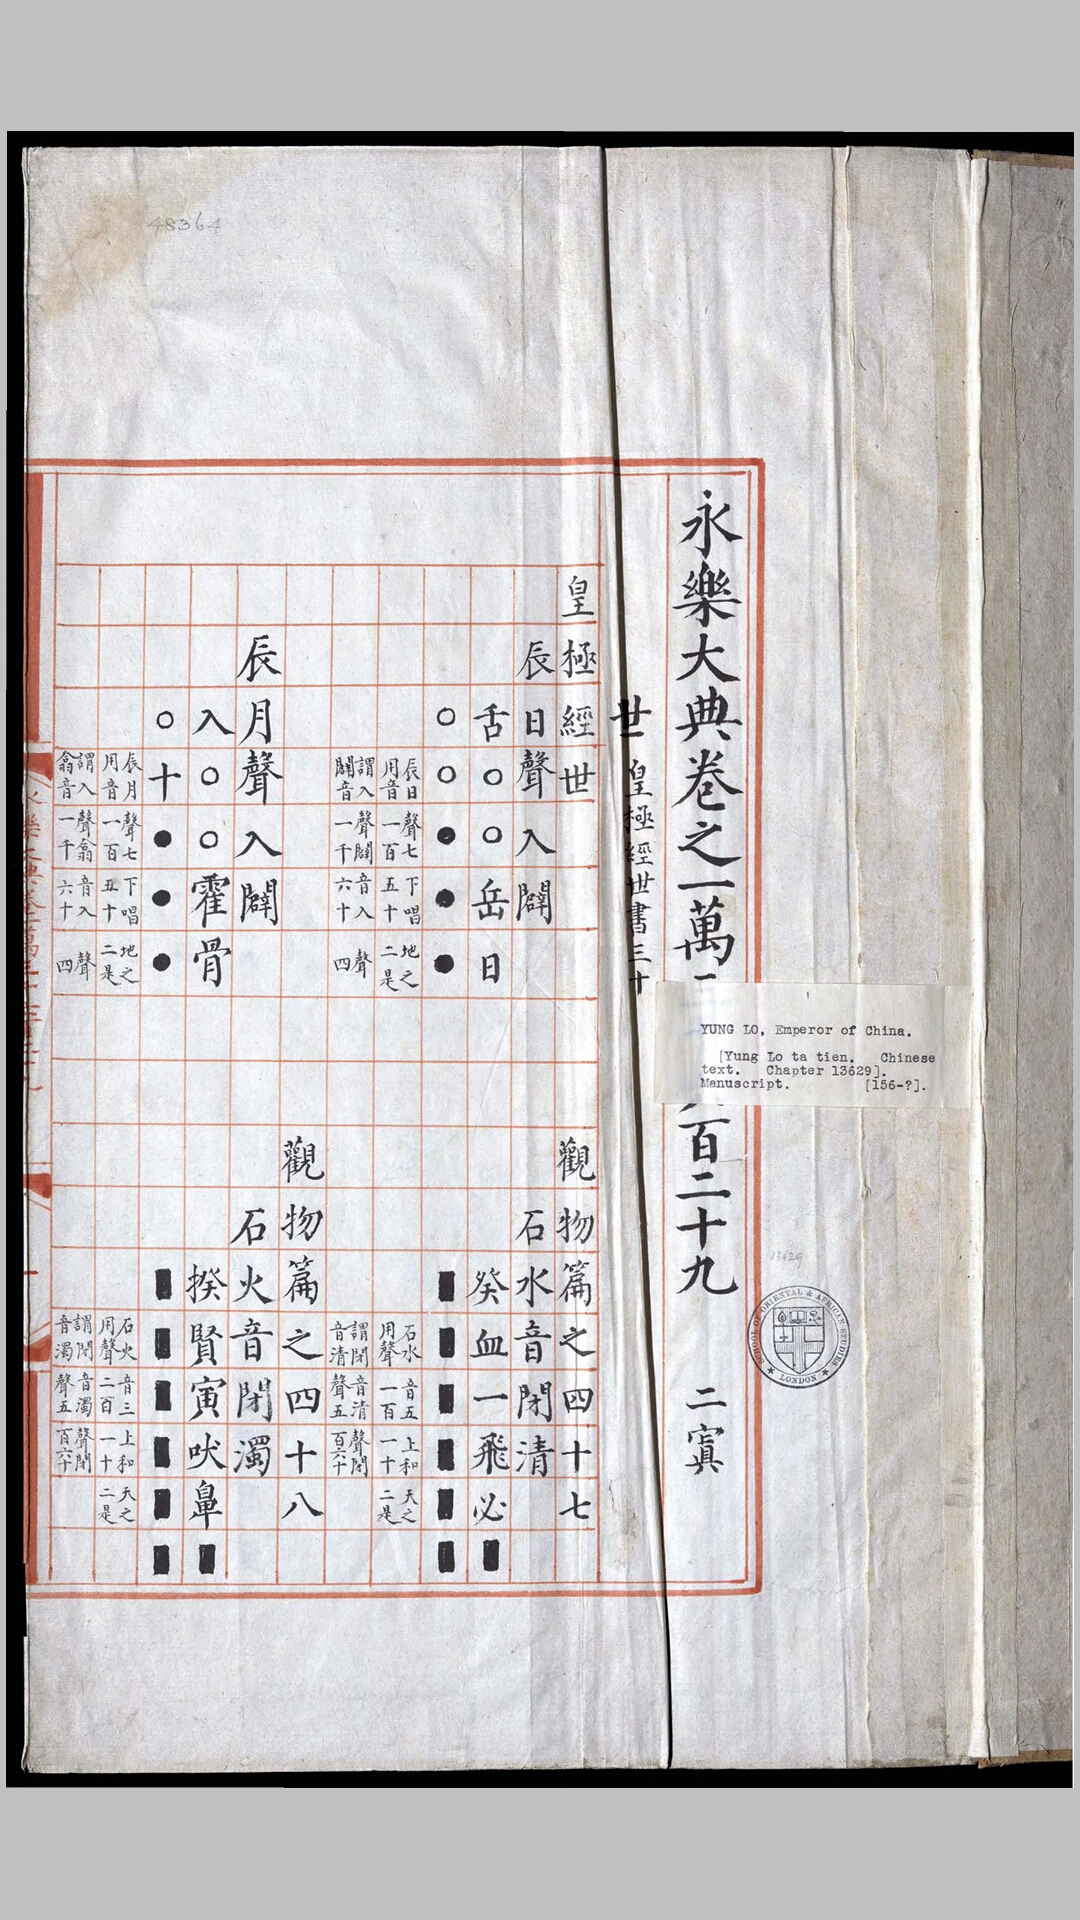 48364
永樂大典卷之一萬
百二十九 二寘
世 皇極經世書三十
YUNG LO, Emperor of China.
[Yung Lo ta tien. Chinese
text. Chapter 13629].
Manuscript. [156-?].
13629
SCHOOL OF ORIENTAL & AFRICAN STUDIES
LONDON
皇極經世 觀物篇之四十七
辰日聲入闢 石水音閉清
舌○○岳日 癸血一飛必■
○○●●● ■■■■■■
辰日聲七下唱地之
用音一百五十二是
謂入聲闢音入聲
闢音一千六十四
石水音五上和天之
用聲一百一十二是
謂閉音清聲閉
音清聲五百六十
觀物篇之四十八
辰月聲入闢 石火音閉濁
入○○霍骨 揆賢寅吠鼻■
○十●●● ■■■■■■
辰月聲七下唱地之
用音一百五十二是
謂入聲翕音入聲
翕音一千六十四
石火音三上和天之
用聲二百一十二是
謂閉音濁聲閉
音濁聲五百六十